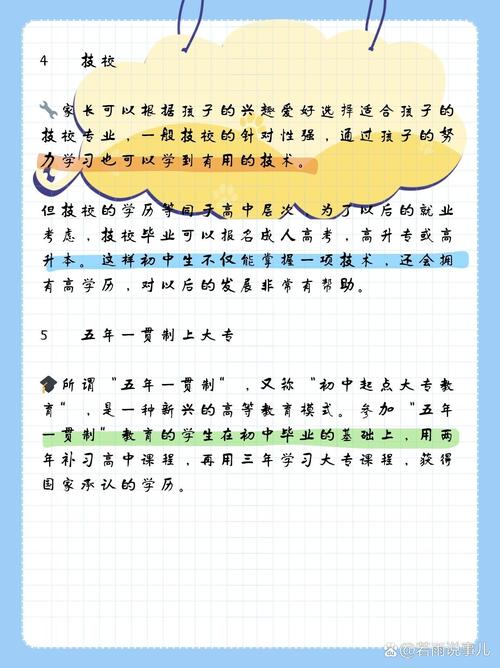 4 技校
🔧家长可以根据孩子的兴趣爱好选择适合孩子的
技校专业，一般技校的针对性强，通过孩子的努
力学习也可以学到有用的技术。
但技校的学历等同于高中层次，为了以后的就业
考虑，技校毕业可以报名成人高考，高升专或高
升本。这样初中生不仅能掌握一项技术，还会拥
有高学历，对以后的发展非常有帮助。
5 五年一贯制上大专
🎓所谓“五年一贯制”，又称“初中起点大专教
育”，是一种新兴的高等教育模式。参加“五年
一贯制”教育的学生在初中毕业的基础上，用两
年补习高中课程，再用三年学习大专课程，获得
国家承认的学历。
@若雨说事儿